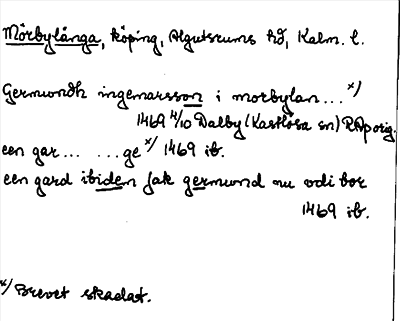 Mörbylånga, köping, Algutsrums hd, Kalm. l.
Germundh ingemarsson i mørbylan... x)
1469 4/10 Dalby (Kastlösa sn) RAp orig.
een gar... ...ge x) 1469 ib.
een gard ibiden Jak germund nu vdi bor
1469 ib.
x) Brevet skadat.